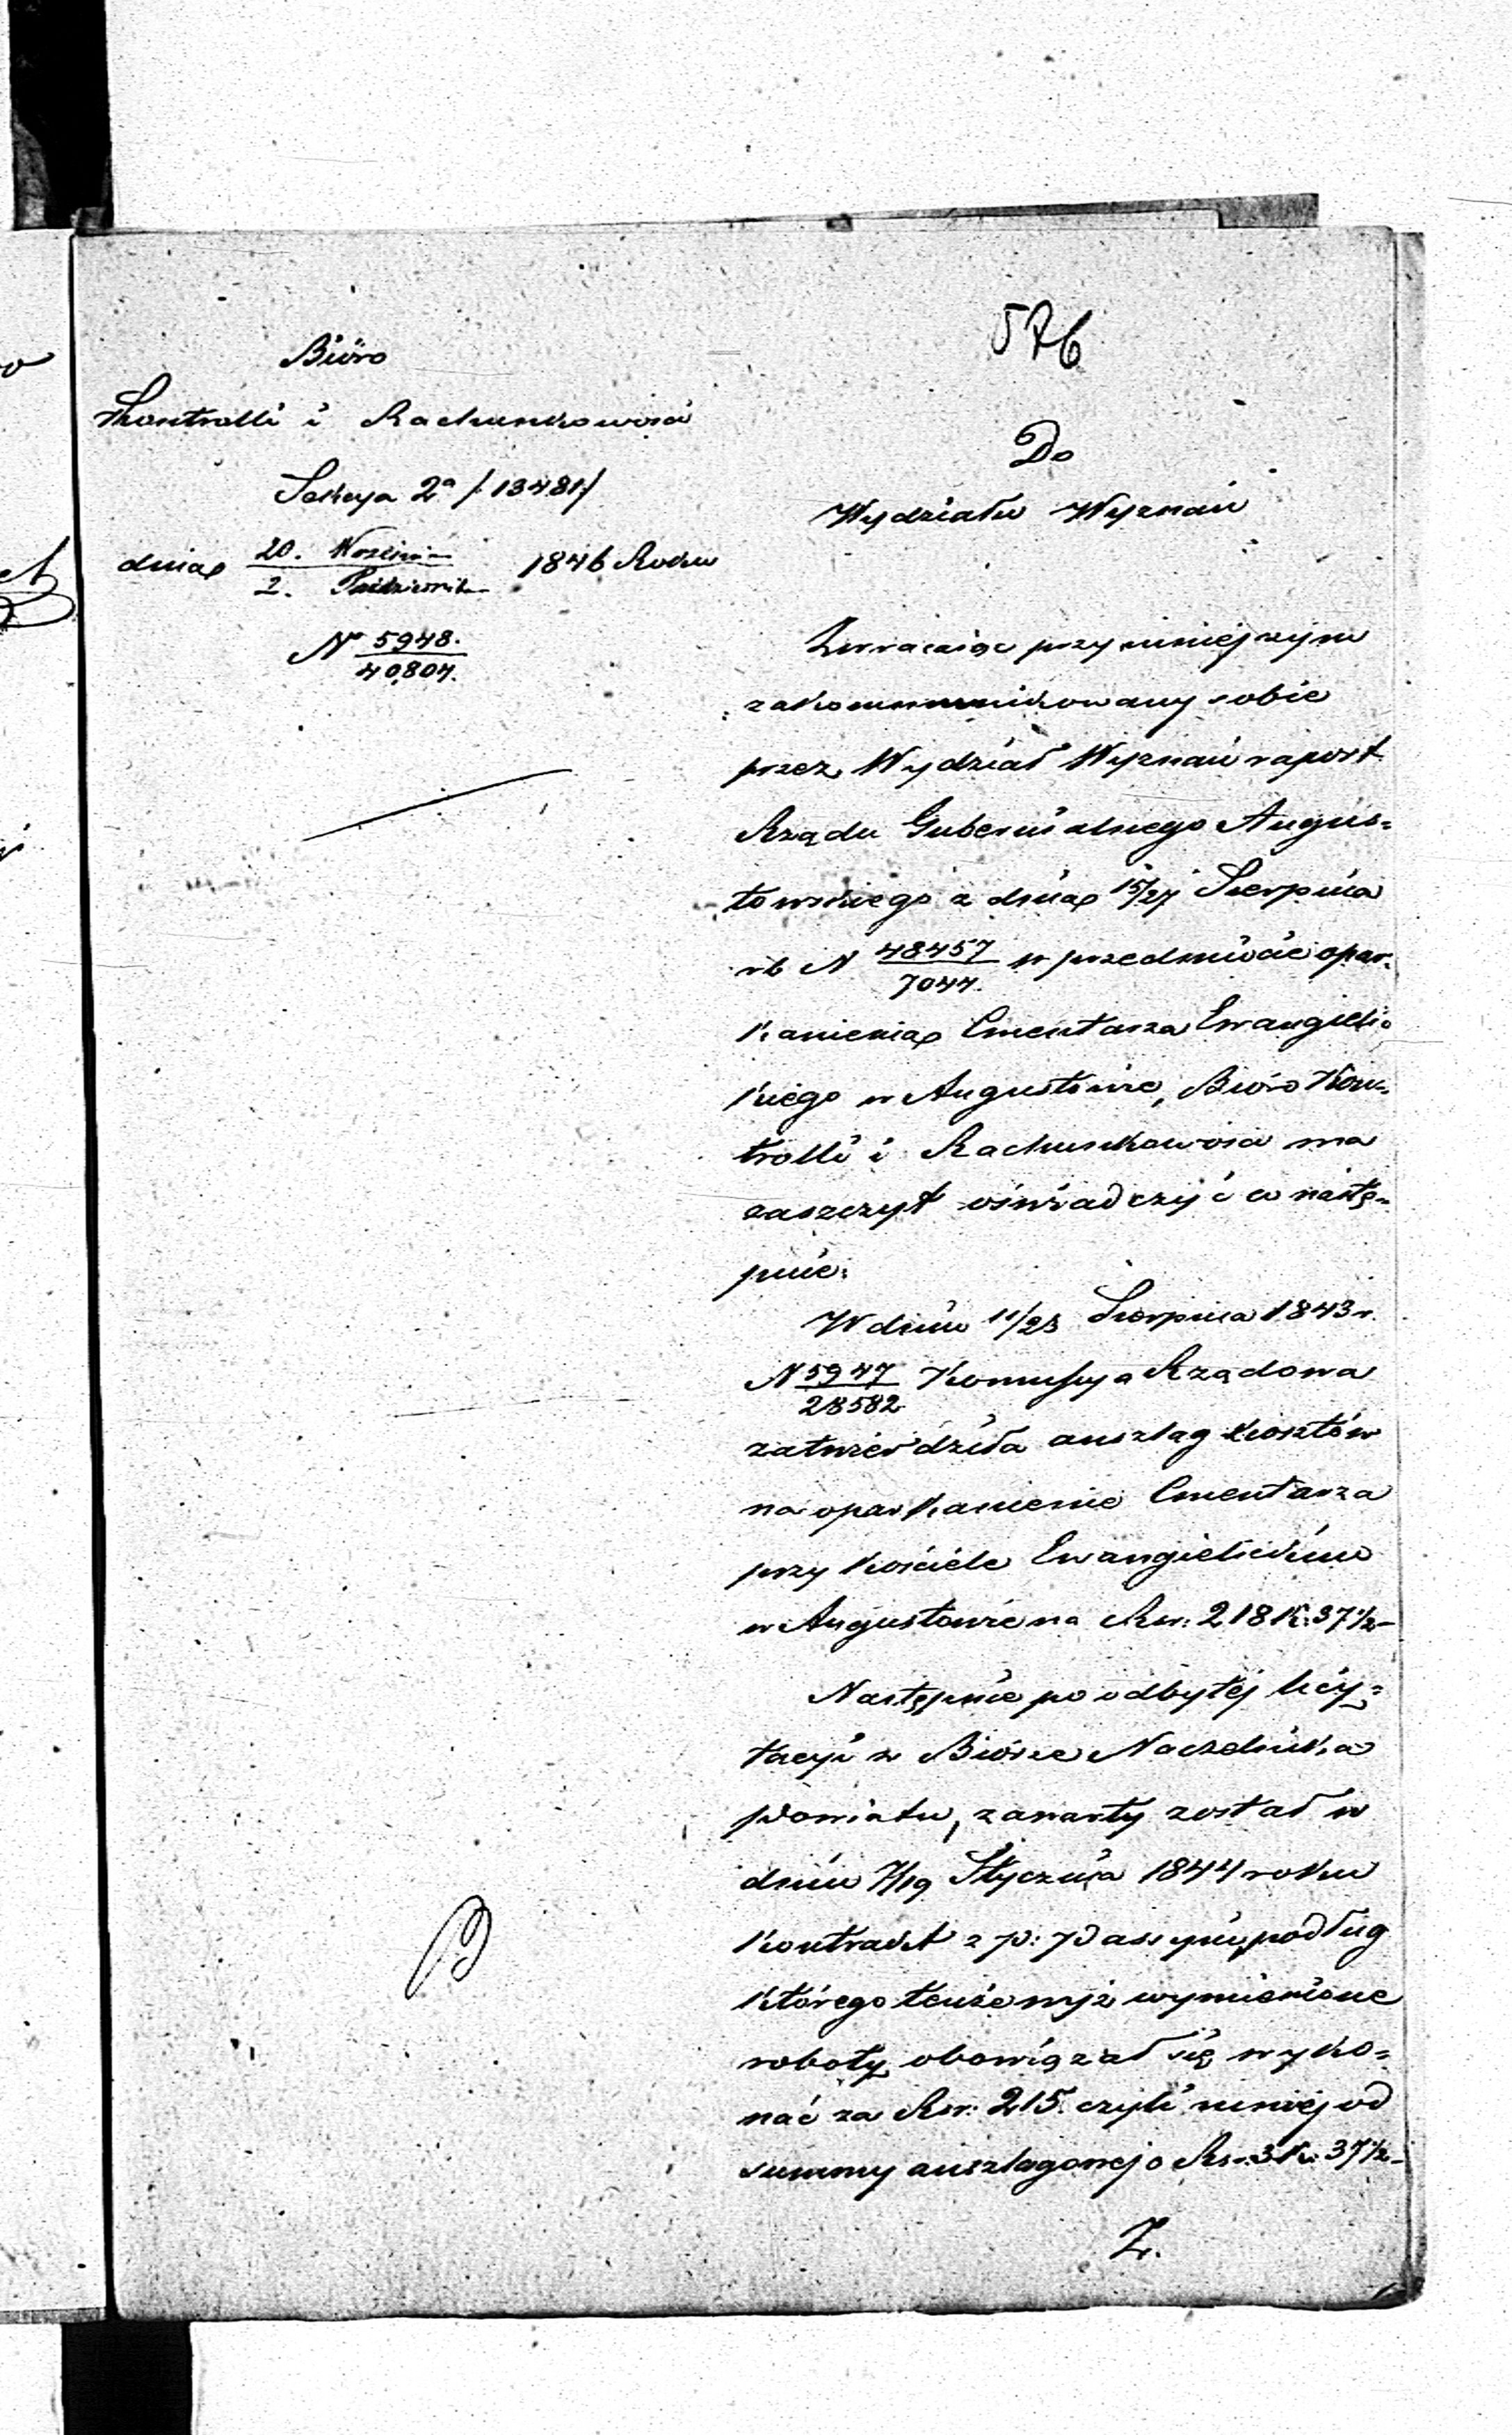 576
Biuro
Kontrolli i Rachunkowości
Sekcya 2ª /:13481:/
dnia 20. Września / 2. Października 1846 Roku
N 5948. / 40,804.
Do
Wydziału Wyznań
Zwracaiąc przy niniejszym
zakommunikowany sobie
przez Wydział Wyznań raport
Rządu Gubernialnego Augus=
towskiego z dnia 15/27 Sierpnia
rb N 48457 / 7044. w przedmiocie opar=
kanienia Cmentarza Ewangielic=
kiego w Augustowie, Biuro Kon=
trolli i Rachunkowości ma
zaszczyt oświadczyć co nastę=
pnie:
W dniu 11/23 Sierpnia 1843 r.
N 5947 / 28582 Kommissya Rządowa
zatwierdziła anszlag kosztów
na oparkanienie Cmentarza
przy Kościele Ewangielickim
w Augustowie na Rsr: 218 K: 37½
Następnie po odbytej licy=
tacyi w Biórze Naczelnika
Powiatu, zawarty został w
dniu 7/19 Stycznia 1844 roku
Kontrakt z P: podług
którego tenże wyż wymienione
roboty obowiązał się wyko=
nać za Rsr: 215. czyli mniej od
summy anszlagowej o Rsr: 3 K: 37½
Z.